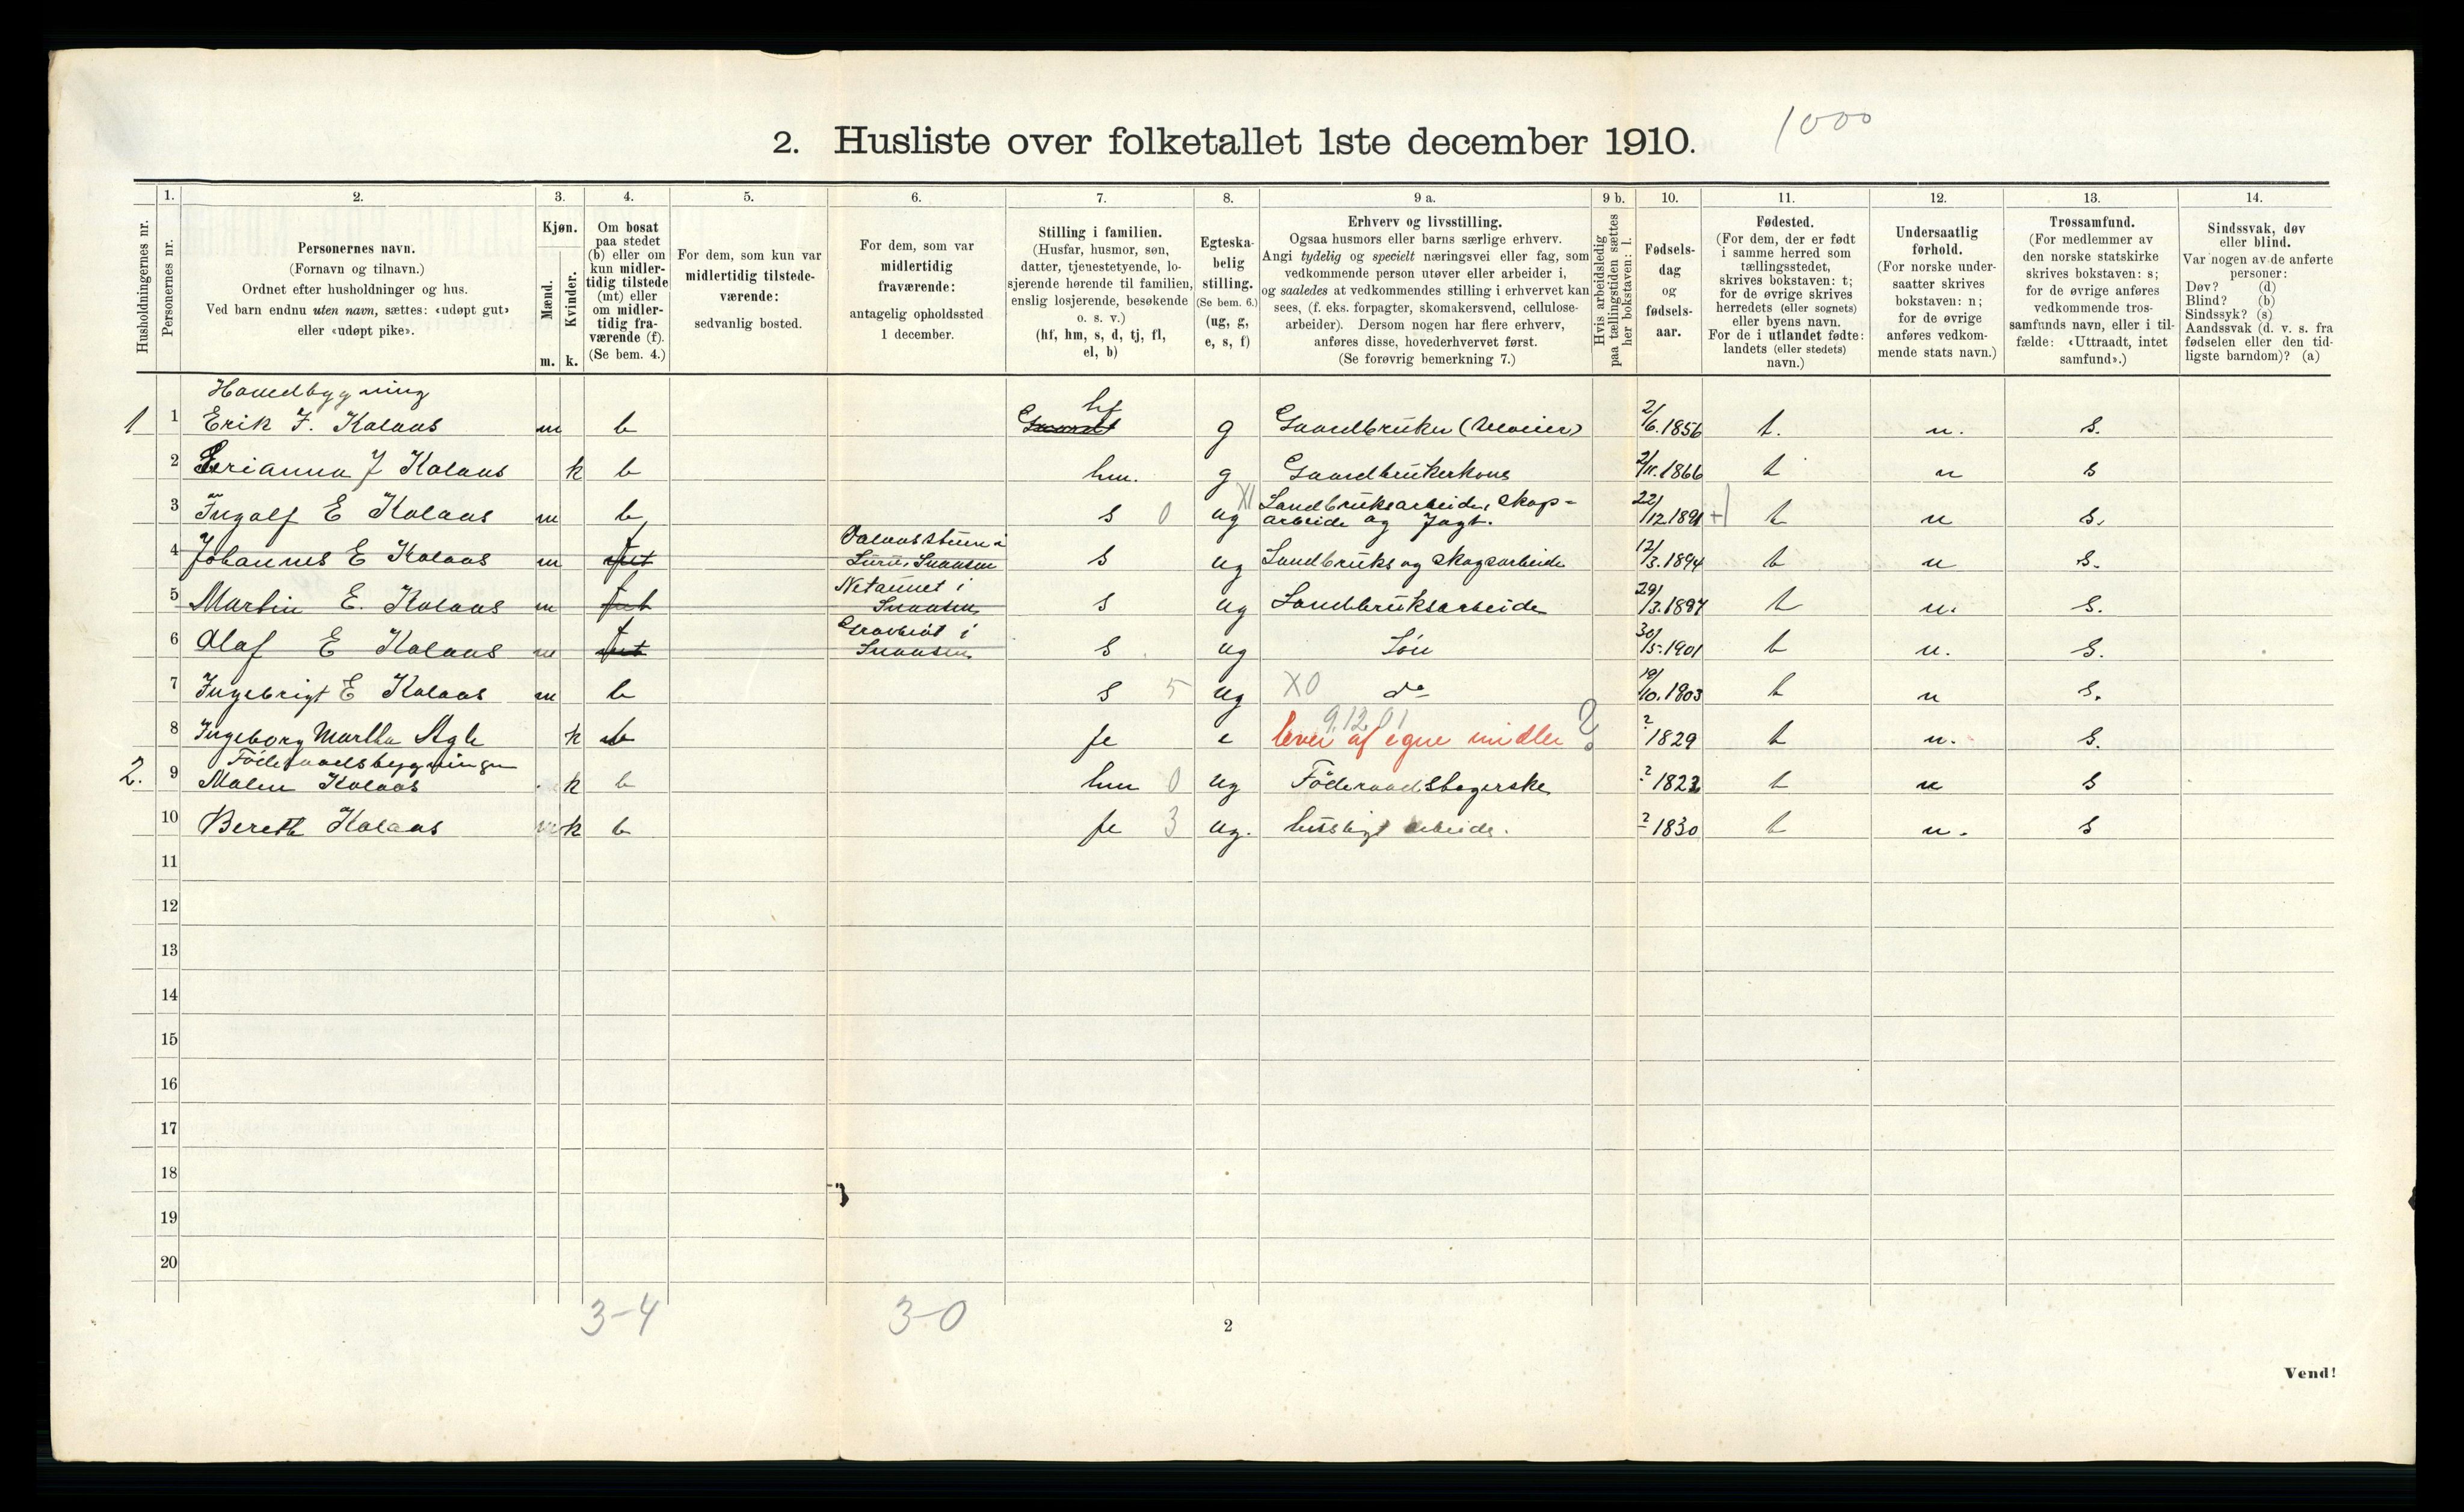 1000
2. Husliste over folketallet 1ste december 1910.
Husholdningernes nr.
1.
Personernes nr.
2.
Personernes navn.
(Fornavn og tilnavn.)
Ordnet efter husholdninger og hus.
Ved barn endnu uten navn, sættes: «udøpt gut»
eller «udøpt pike».
3.
Kjøn.
Mænd.
Kvinder.
m. k.
4.
Om bosat
paa stedet
(b) eller om
kun midler-
tidig tilstede
(mt) eller
om midler-
tidig fra-
værende (f).
(Se bem. 4.)
5.
For dem, som kun var
midlertidig tilstede-
værende:
sedvanlig bosted.
6.
For dem, som var
midlertidig
fraværende:
antagelig opholdssted
1 december.
7.
Stilling i familien.
(Husfar, husmor, søn,
datter, tjenestetyende, lo-
sjerende hørende til familien,
enslig losjerende, besøkende
o. s. v.)
(hf, hm, s, d, tj, fl,
el, b)
8.
Egteska-
belig
stilling.
(Se bem. 6.)
(ug, g,
e, s, f)
9 a.
Erhverv og livsstilling.
Ogsaa husmors eller barns særlige erhverv.
Angi tydelig og specielt næringsvei eller fag, som
vedkommende person utøver eller arbeider i,
og saaledes at vedkommendes stilling i erhvervet kan
sees, (f. eks. forpagter, skomakersvend, cellulose-
arbeider). Dersom nogen har flere erhverv,
anføres disse, hovederhvervet først.
(Se forøvrig bemerkning 7.)
9 b.
Hvis arbeidsledig
paa tællingstiden sættes
her bokstaven: l.
10.
Fødsels-
dag
og
fødsels-
aar.
11.
Fødested.
(For dem, der er født
i samme herred som
tællingsstedet,
skrives bokstaven: t;
for de øvrige skrives
herredets (eller sognets)
eller byens navn.
For de i utlandet fødte:
landets (eller stedets)
navn.)
12.
Undersaatlig
forhold.
(For norske under-
saatter skrives
bokstaven: n;
for de øvrige
anføres vedkom-
mende stats navn.)
13.
Trossamfund.
(For medlemmer av
den norske statskirke
skrives bokstaven: s;
for de øvrige anføres
vedkommende tros-
samfunds navn, eller i til-
fælde: «Uttraadt, intet
samfund».)
14.
Sindssvak, døv
eller blind.
Var nogen av de anførte
personer:
Døv? (d)
Blind? (b)
Sindssyk? (s)
Aandssvak (d. v. s. fra
fødselen eller den tid-
ligste barndom)? (a)
Hovedbygning
1 1 Erik J. Kolaas m b hf g Gaardbruker 2/6.1856 t. n. s.
2 J Kolaas k b hm. g Gaardbrukerkone 2/11.1866 t n s
3 Ingolf E Kolaas m b s 0 ug XI Landbruksarbeide, skog=
arbeide og Jagt. 22/12.1891 t n s.
4 Johannes E Kolaas m f Snaasen s ug Landbruks og skogsarbeide 12/3.1894 t n s.
5 Martin E. Kolaas m f i Snaasen s ug Landbruksarbeide 29/3.1897 t n. s.
6 Olaf E Kolaas m f i Snaasen s. ug Søn 30/5.1901 t n. s.
7 Ingebrigt E Kolaas m b s 5 ug XO do 19/10.1903 t n s.
8 Ingeborg Martha Agle k b fl e 9.12.01 lever af egne midler ? ? 1829 t n. s.
Føderaadsbygningen
2. 9 Malen Kolaas k b hm 0 ug Føderaadstagerske ? 1823 t n s
10 Bereth Kolaas k b fl 3 ug. husligt arbeide. ? 1830 t n. s
11
12
13
14
15
16
17
18
19
20
3-4 3-0
2
Vend!